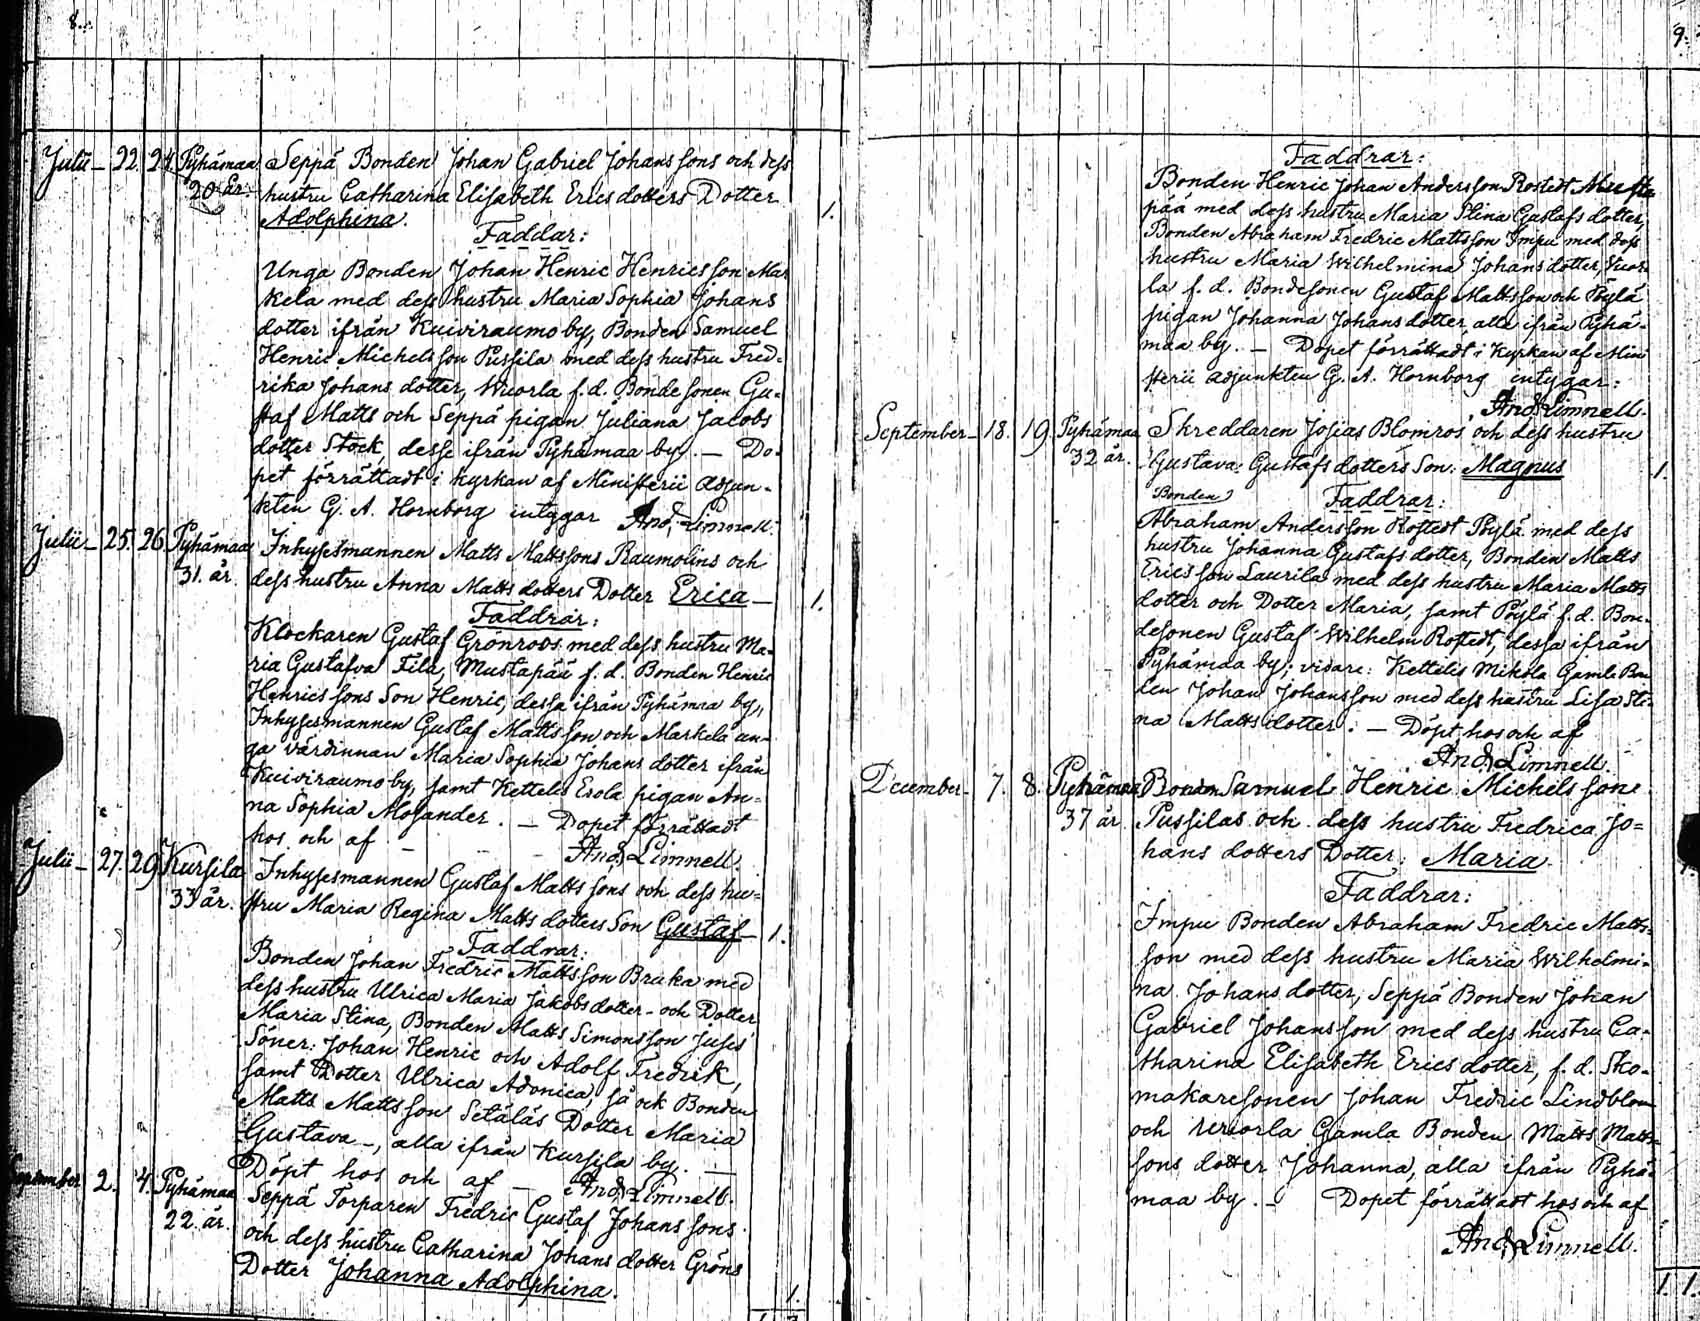 8.
Julii - 22. 24. Pyhämaa Seppä Bonden Johan Gabriel Johanssons och dess
20 år. hustru Catharina Elisabeth Ericsdotters Dotter
Adolphina. 1.
Faddar:
Unga Bonden Johan Henric Henricsson Mar
kela med dess hustru Maria Sophia Johans
dotter ifrån Kuiviraumo by, Bonden Samuel
Henric Michelsson Pussila med dess hustru Fred-
rika Johans dotter, Wuorla f.d. Bondesonen Gu-
staf Matts och Seppä pigan Juliana Jacobs
dotter Stock, desse ifrån Pyhämaa by. — Do-
pet förrättadt i kyrkan af Ministerii adjun-
kten G. A. Hornborg intygar And. Limnell.
Julii - 25. 26. Pyhämaa Inhysesmannen Matts Mattssons Raumolins och
31. år. dess hustru Anna Matts dotters Dotter Erica — 1.
Faddrar:
Klockaren Gustaf Grönroos med dess hustru Ma-
ria Gustafva Fila, Mustapää f.d. Bonden Henric
Henricssons Son Henric, dessa ifrån Pyhämaa by,
Inhysesmannen Gustaf Mattsson och Markela un-
ga värdinnan Maria Sophia Johans dotter ifrån
Kuiviraumo by, samt Kettelis Esola pigan An-
na Sophia Mosander. — Dopet förrättadt
hos och af — And. Limnell.
Julii - 27. 29. Kursila Inhysesmannen Gustaf Mattssons och dess hu-
33 år. stru Maria Regina Matts dotters Son Gustaf — 1.
Faddrar:
Bonden Johan Fredric Mattsson Bruka med
dess hustru Ulrica Maria Jakobsdotter - och Dotter
Maria Stina, Bonden Matts Simonsson Juses
Söner: Johan Henric och Adolf Fredrik,
samt Dotter Ulrica Adonica, så ock Bonden
Matts Mattsson Setäläs Dotter Maria
Gustava —, alla ifrån Kursila by. —
Döpt hos och af — And. Limnell.
September 2. 4. Pyhämaa Seppä Torparen Fredric Gustaf Johanssons
22. år. och dess hustru Catharina Johans dotter Gröns
Dotter Johanna Adolphina. 1.
9.
Faddrar:
Bonden Henric Johan Andersson Rostedt Musta
pää med dess hustru Maria Stina Gustafs dotter,
Bonden Abraham Fredric Mattsson Impu med dess
hustru Maria Wilhelmina Johans dotter, Vuor-
la f.d. Bondesonen Gustaf Mattsson och Pöylä
pigan Johanna Johans dotter, alla ifrån Pyhä-
maa by. — Dopet förrättadt i Kyrkan af Mini
sterii adjunkten G. A. Hornborg intygar:
And. Limnell.
September - 18. 19. Pyhämaa Skreddaren Josias Blomros och dess hustru
32 år. Gustava Gustafsdotters Son: Magnus 1.
Bonden Faddrar:
Abraham Andersson Rostedt Pöylä med dess
hustru Johanna Gustafs dotter, Bonden Matts
Ericsson Laurila med dess hustru Maria Matts
dotter och Dotter Maria, samt Pöylä f.d. Bon-
desonen Gustaf Wilhelm Rostedt, dessa ifrån
Pyhämaa by; vidare: Kettelis Mikola Gamle Bon
den Johan Johansson med dess hustru Lisa Sti-
na Mattsdotter. — Döpt hos och af
And. Limnell.
December - 7. 8. Pyhämaa Bonden Samuel Henric Michelssons
37 år Pussilas och dess hustru Fredrica Jo-
hans dotters Dotter: Maria.
Faddrar:
Impu Bonden Abraham Fredric Matts-
son med dess hustru Maria Wilhelmi-
na Johans dotter, Seppä Bonden Johan
Gabriel Johansson med dess hustru Ca-
tharina Elisabeth Ericsdotter, f.d. Sko-
makaresonen Johan Fredric Lindblom
och Wuorla Gamla Bonden Matts Matts-
sons dotter Johanna, alla ifrån Pyhä-
maa by. — Dopet förrättadt hos och af
And. Limnell.
1. 1.